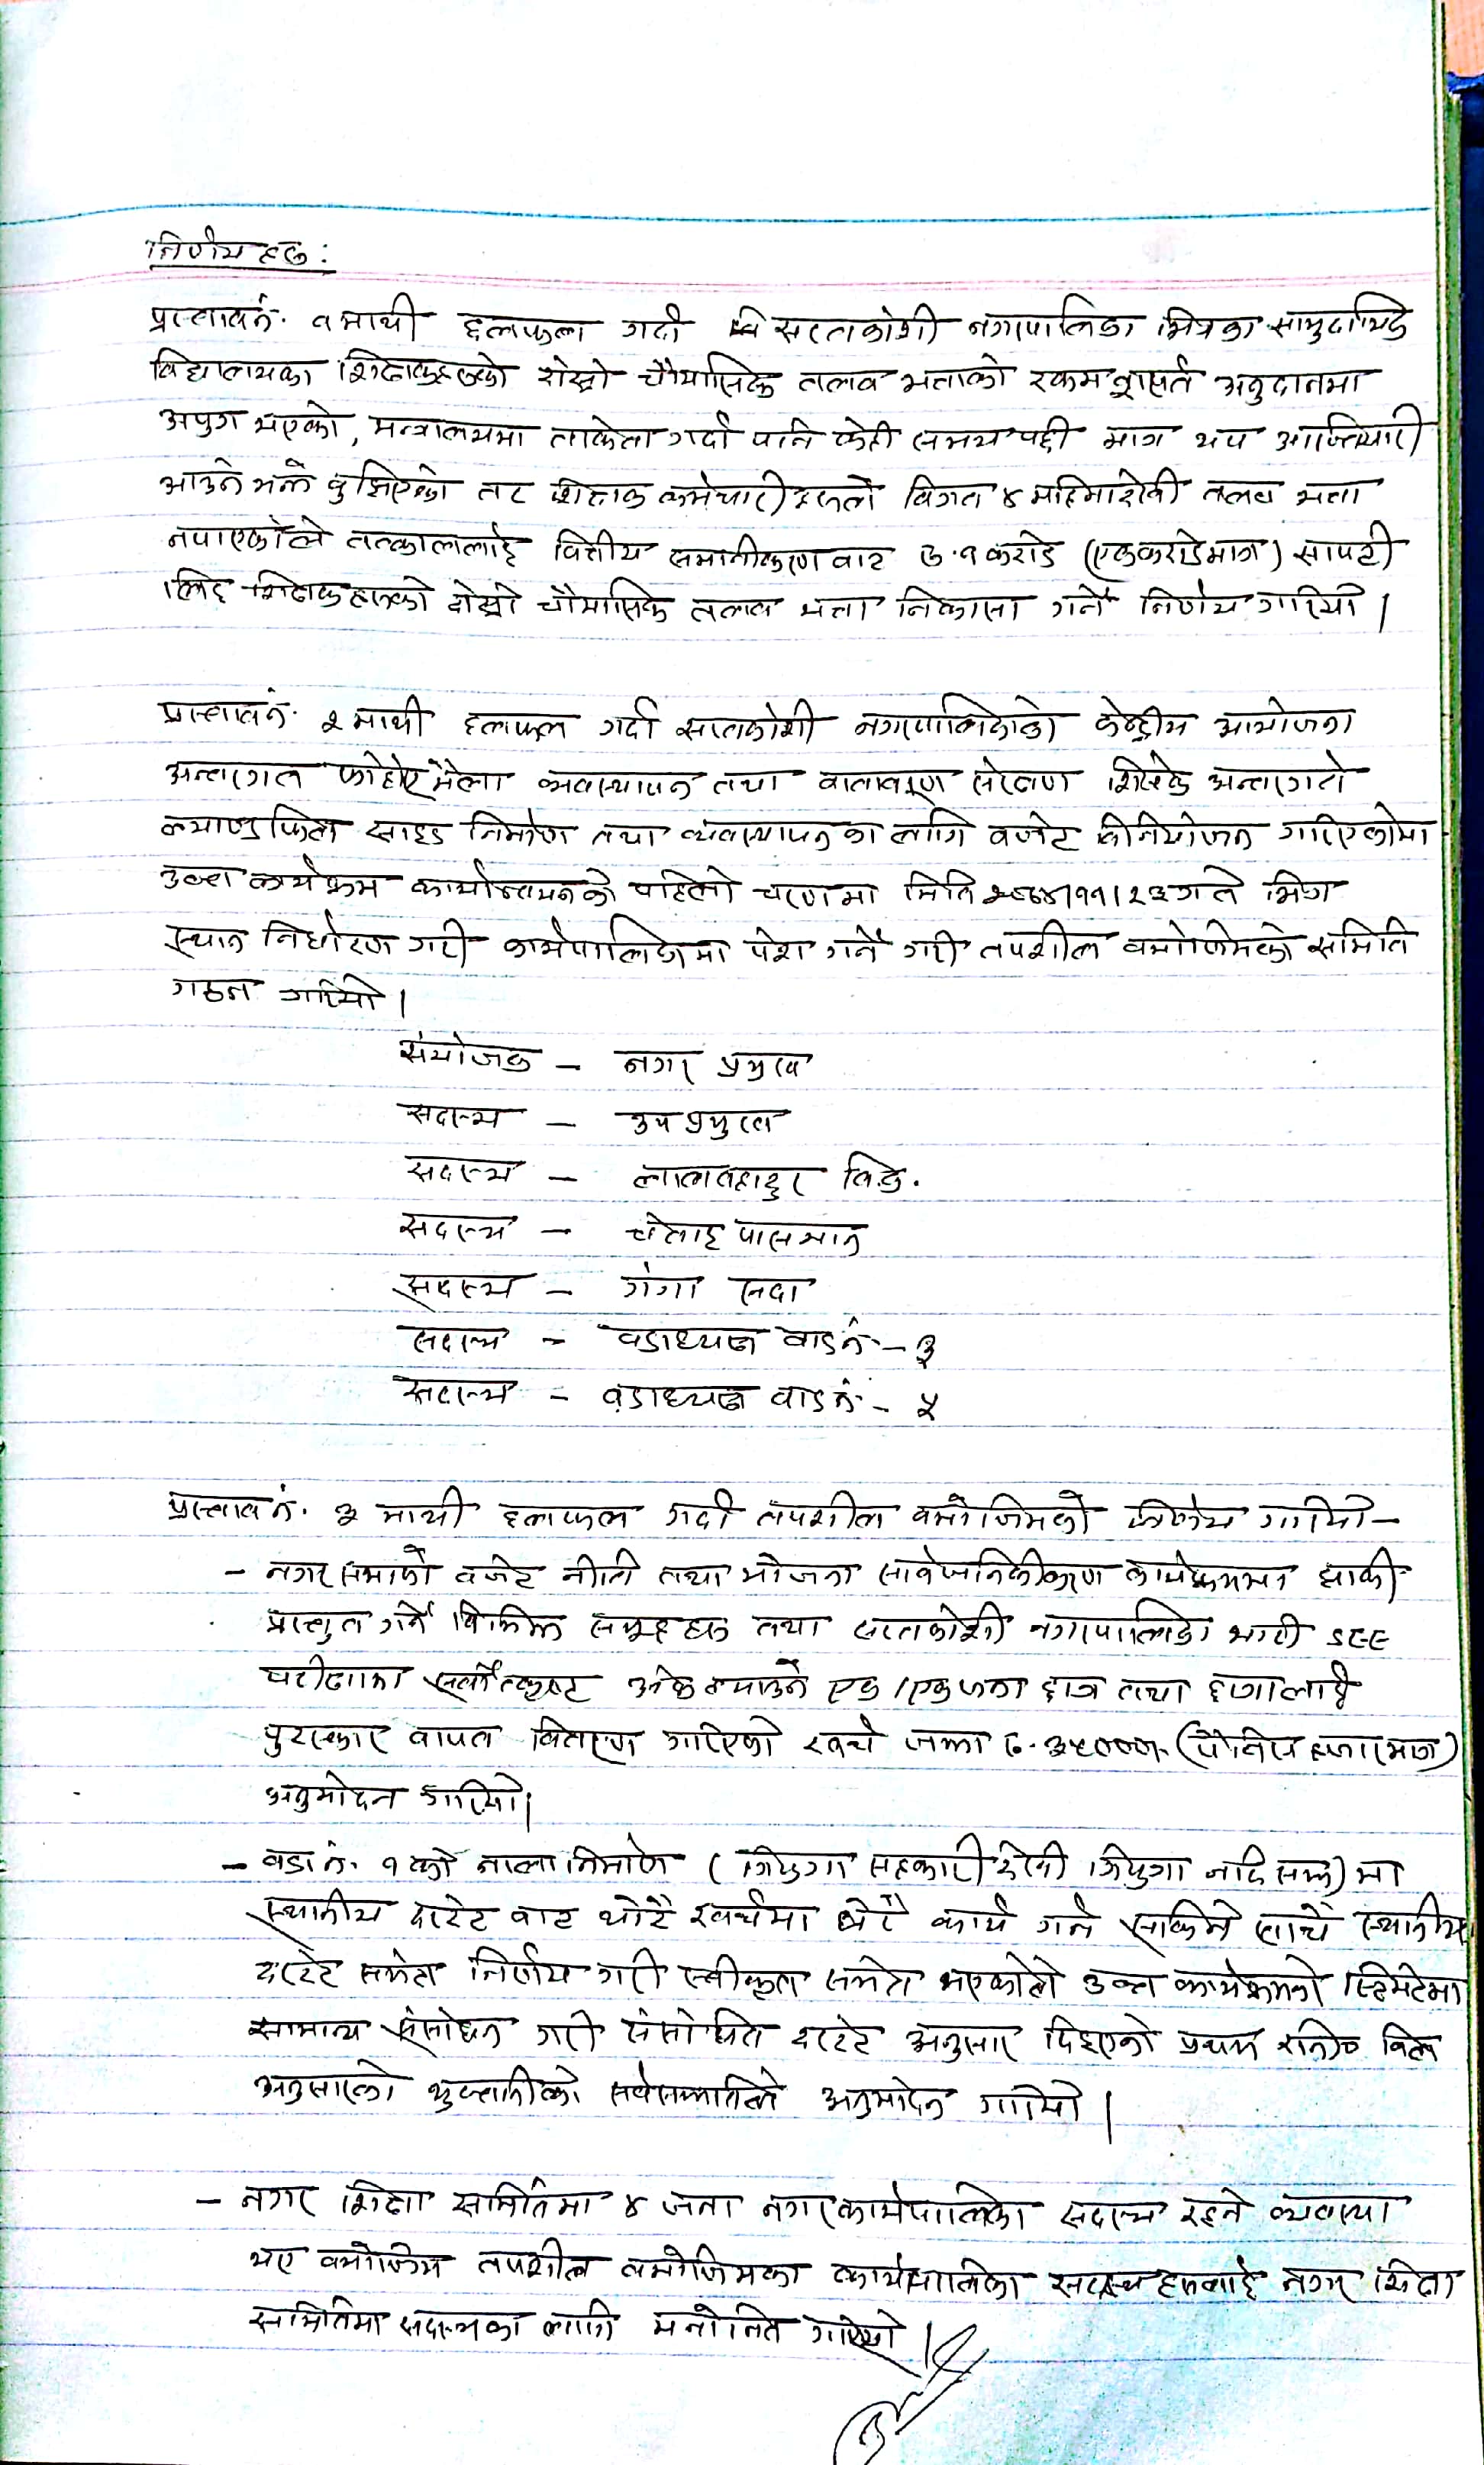 निर्णयहरु :
प्रस्ताव नं. १ माथी छलफल गर्दा सप्तकोशी नगरपालिका भित्रका सामुदायिक
विद्यालयका शिक्षकहरुको दोस्रो चौमासिक तलव भत्ताको रकम शसर्त अनुदानमा
अपुग भएको, मन्त्रालयमा ताकेता गर्दा पनि केही समय पछी मात्र थप अख्तियारी
आउने भन्ने बुझिएको तर शिक्षक कर्मचारीहरुले विगत ४ महिना देखी तलव भत्ता
नपाएकोले तत्काललाई वित्तीय समानीकरण वाट रु. १ करोड (एक करोड मात्र) सापटी
लिई शिक्षकहरुको दोस्रो चौमासिक तलव भत्ता निकासा गर्ने निर्णय गरियो ।
प्रस्ताव नं. २ माथी छलफल गर्दा सप्तकोशी नगरपालिकाको केन्द्रीय आयोजना
अन्तरगत फोहोर मैला व्यवस्थापन तथा वातावरण संरक्षण शिर्षक अन्तरगत
ल्याण्ड फिल्ड साइड निर्माण तथा व्यवस्थापन का लागि वजेट विनियोजन गरिएकोमा
उक्त कार्यक्रम कार्यान्वयनको पहिलो चरणमा मिति २०७४।११।२३ गते भित्र
स्थान निर्धारण गरी कार्यपालिकामा पेश गर्ने गरी तपशील वमोजिमको समिति
गठन गरियो ।
संयोजक – नगर प्रमुख
सदस्य – उप प्रमुख
सदस्य – लालबहादुर विक.
सदस्य – चेताइ पासमान
सदस्य – गंगा सदा
सदस्य – वडाध्यक्ष वाड नं. – ३
सदस्य – वडाध्यक्ष वाड नं. – ५
प्रस्ताव नं. ३ माथी छलफल गर्दा तपशील वमोजिमको निर्णय गरियो –
– नगर सभाको वजेट नीति तथा योजना सार्वजनिकीकरण कार्यक्रममा झाकी
प्रस्तुत गर्ने विभिन्न समूहहरु तथा सप्तकोशी नगरपालिका भरी SEE
परीक्षामा सर्वोत्कृष्ट अंक ल्याउने एक/एक जना छात्र तथा छात्रालाई
पुरस्कार वापत वितरण गरिएको खर्च जम्मा रु. ३५०००।- (पैंतिस हजार मात्र)
अनुमोदन गरियो।
– वडा नं. १ को नाला निर्माण (त्रियुगा सहकारी देखी त्रियुगा नदि सम्म) मा
स्थानीय दररेट वाट थोरै खर्चमा धेरै कार्य गर्न सकिने साथै स्थानीय
दररेट समेत निर्णय गरी स्वीकृत समेत भएकोले उक्त कार्यक्रमको स्टिमेटमा
सामान्य संसोधन गरी संसोधित दररेट अनुसार दिइएको प्रथम रनिङ विल
अनुसारको भुक्तानीको सर्वसम्मतिले अनुमोदन गरियो ।
– नगर शिक्षा समितिमा ४ जना नगर कार्यपालिका सदस्य रहने व्यवस्था
भए वमोजिम तपशील वमोजिमका कार्यपालिका सदस्यहरुलाई नगर शिक्षा
समितिमा सदस्यका लागि मनोनित गरियो ।